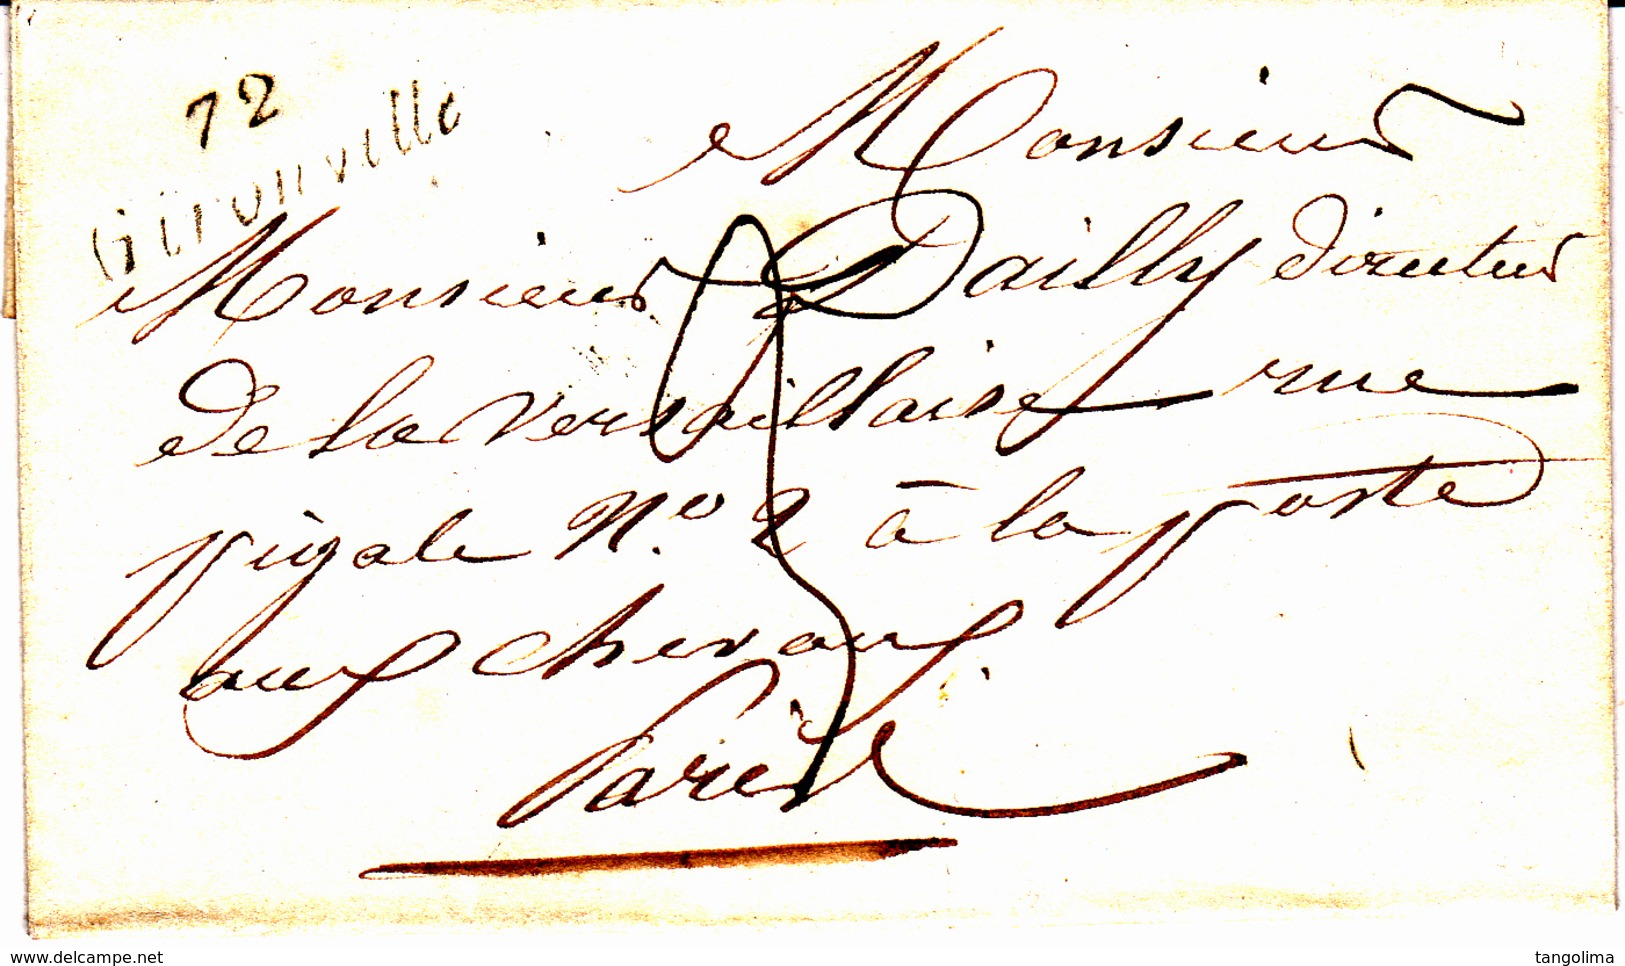 72
Gironville
Monsieur
Monsieur Dailly directeur
de la Versaillaise rue
pigale N.o 2 à la poste
aux chevaux
Paris
www.delcampe.net
tangolima